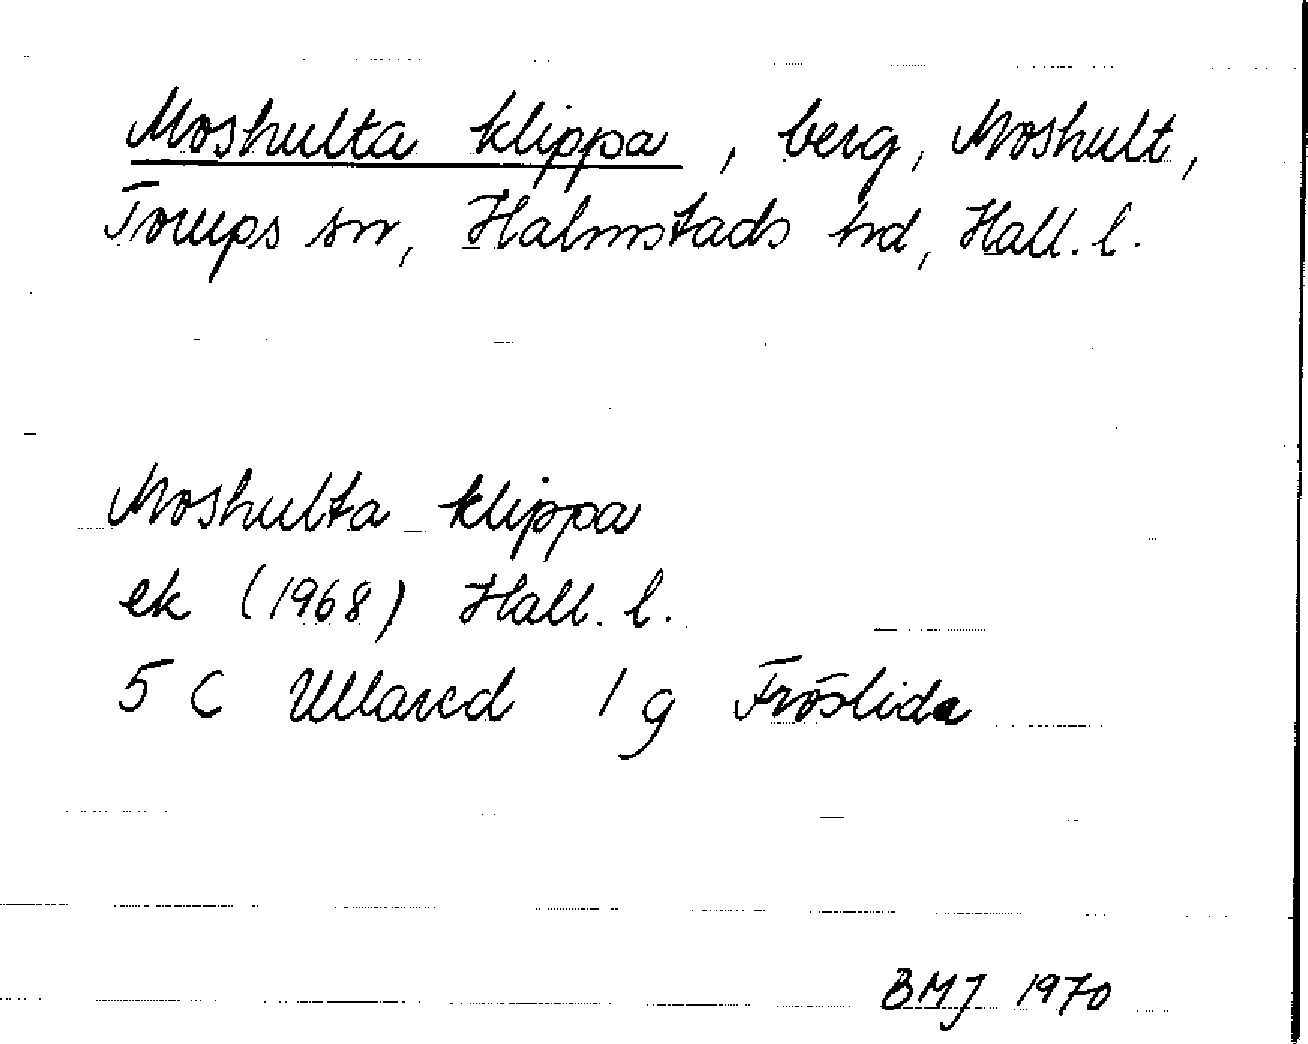 Moshulta klippa, berg, Moshult,
Torups sn, Halmstads hd, Hall. l.
Moshulta klippa
ek (1968) Hall. l.
5 C Ullared 1 g Fröslida
BMJ 1970